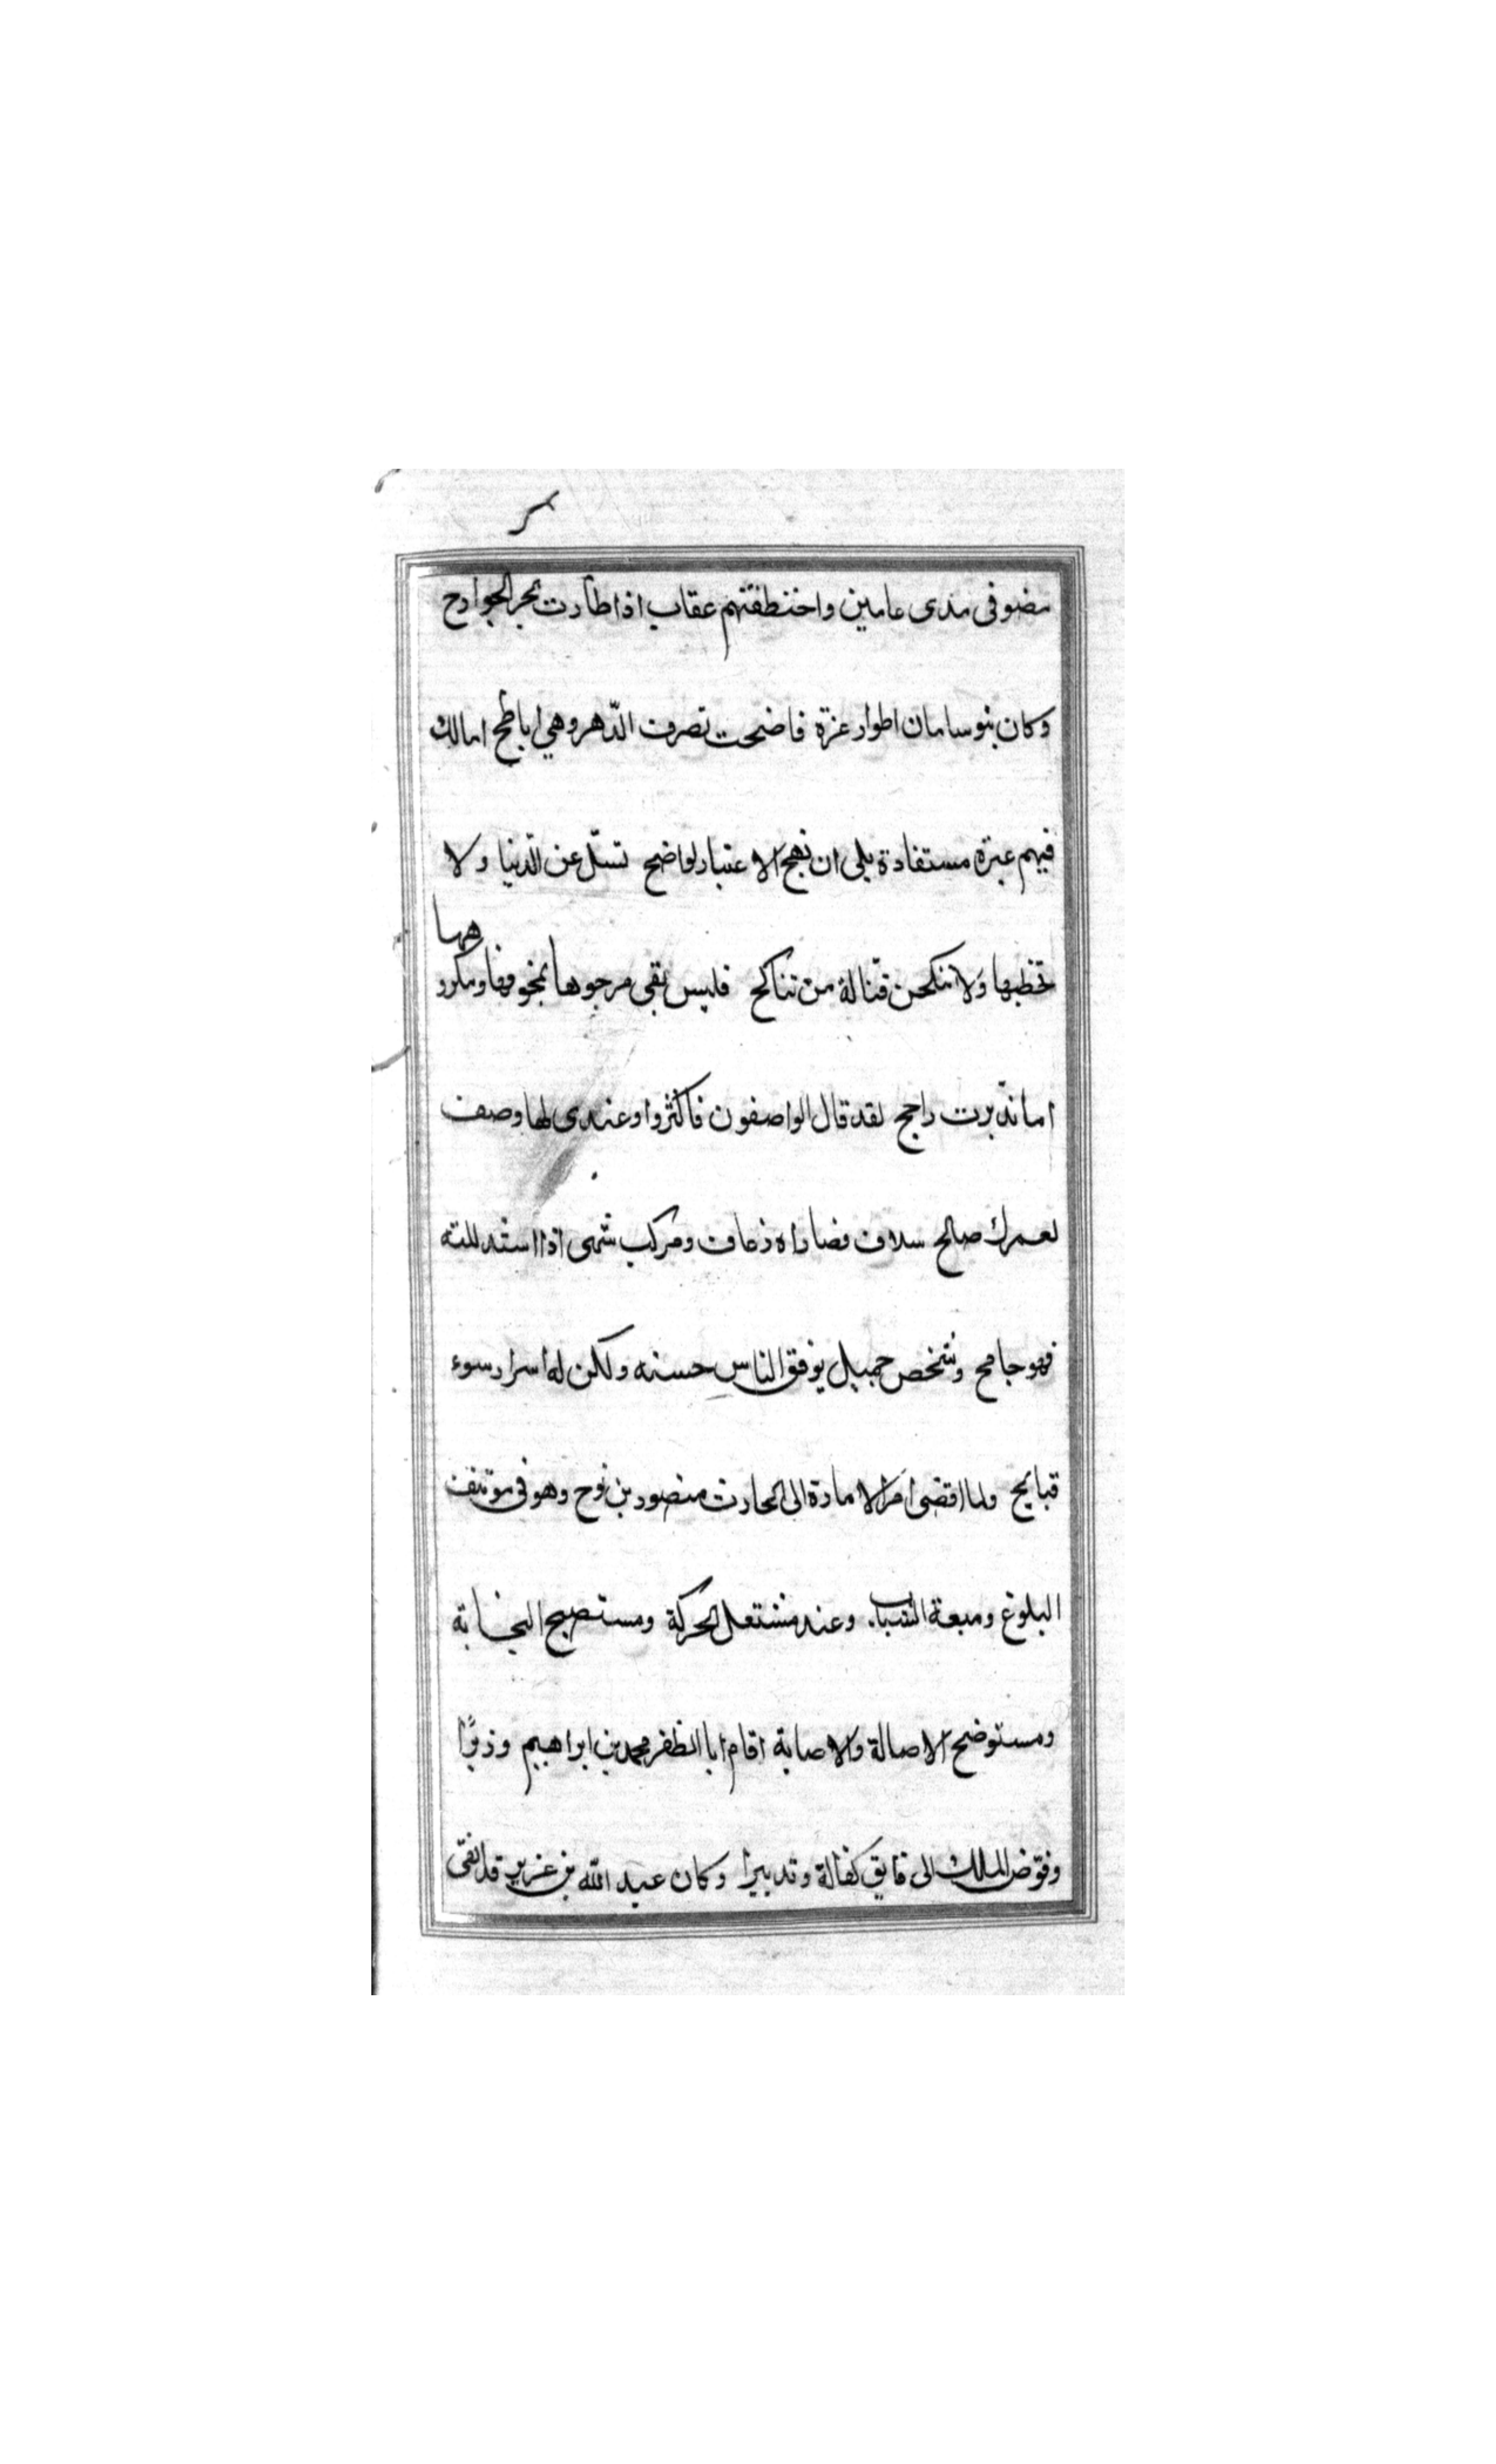 مضوفى مدى عامين واختطفتهم عقاب اذا طارت تجر الجوارح
وكان بنو سامان اطواد عزة فاضحت تصرف الدّهر وهي اباطح امالك
فيهم عبرة مستفادة بلى ان نهج الاعتبار لواضح تسلّ عن الدّنيا ولا
تخطبها ولا تنكحن قتّالة من تناكح فليس يفى مرجوها بمخوفها ومكروهها
اما تدبّرت راجح لقد قال الواصفون فاكثروا وعندى لها وصف
لعمرك صالح سلاف قصاراه زعاف ومركب شهى اذا استذللته
فهو جامح وشخص جميل يؤفق الناس حسنه ولكن له اسرار سوء
قبايح ولما افضى امر الامارة الى الحارث منصور بن نوح وهو فى مؤتنف
البلوغ وميعة الشباب وعند مشتعل الحركة ومستصبح النجابة
ومستوضح الاصالة والاصابة اقام ابا المظفر محمد بن ابراهيم وزيرًا
وفوّض الملك الى فايق كفالة وتدبيرا وكان عبد الله بن عزيز قد نفى